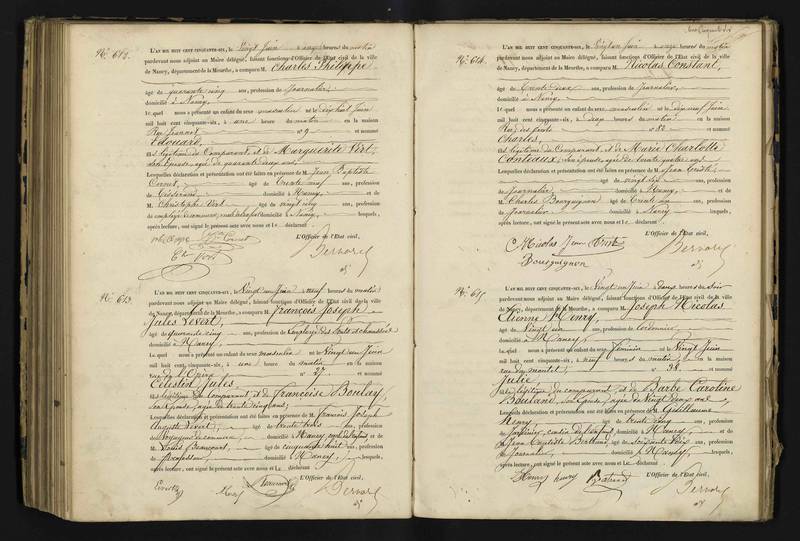 No. 612.
L'AN MIL HUIT CENT CINQUANTE-SIX, le Vingt Juin à onze heures du matin
pardevant nous adjoint au Maire délégué, faisant fonctions d'Officier de l'État civil de la ville
de Nancy, département de la Meurthe, a comparu M. Charles Philippe
âgé de quarante cinq ans, profession de Journalier
domicilié à Nancy
Lequel nous a présenté un enfant du sexe masculin né le dix huit Juin
mil huit cent cinquante-six, à une heure du matin en la maison
Rue Jeannot n° 9 et nommé
Édouard,
fils légitime du Comparant et de Marguerite Vert,
son épouse, agée de quarante deux ans,
Lesquelles déclaration et présentation ont été faites en présence de M. Jean Baptiste
âgé de trente neuf ans, profession
de domicilié à Nancy et de
M. Christophe Vert âgé de vingt cinq ans, profession
d'employé domicilié à Nancy, lesquels,
après lecture, ont signé le présent acte avec nous et l déclarant
L'Officier de l'État civil,
Vert
Bernard
adj.
No. 613.
L'AN MIL HUIT CENT CINQUANTE-SIX, le Vingt un Juin à neuf heures du matin
pardevant nous adjoint au Maire délégué, faisant fonctions d'Officier de l'État civil de la ville
de Nancy, département de la Meurthe, a comparu M. François Joseph
Jules Levert,
âgé de quarante cinq ans, profession de Ponts et chaussées
domicilié à Nancy,
Lequel nous a présenté un enfant du sexe masculin né le Vingt un Juin
mil huit cent cinquante-six, à une heure du matin en la maison
n° 27 et nommé
Célestin Jules,
fils légitime du Comparant et de Françoise Boulay,
son épouse, agée de trente cinq ans;
Lesquelles déclaration et présentation ont été faites en présence de M. François Joseph
Auguste Levert, âgé de trente trois ans, profession
de Voyageur de commerce, domicilié à Nancy et de
M. Louis âgé de cinquante huit ans, profession
de Professeur domicilié à Nancy, lesquels,
après lecture, ont signé le présent acte avec nous et Le déclarant
L'Officier de l'État civil,
Bernard
adj.
No. 614.
L'AN MIL HUIT CENT CINQUANTE-SIX, le Vingt un Juin à onze heures du matin
pardevant nous adjoint au Maire délégué, faisant fonctions d'Officier de l'État civil de la ville
de Nancy, département de la Meurthe, a comparu M. Nicolas Constant,
âgé de trente deux ans, profession de Journalier,
domicilié à Nancy,
Lequel nous a présenté un enfant du sexe masculin né le dix neuf Juin
mil huit cent cinquante-six, à onze heures du matin en la maison
Rue des ponts n° 82 et nommé
Charles,
fils légitime du Comparant et de Marie Charlotte
Conteaux, son épouse, agée de trente quatre ans
Lesquelles déclaration et présentation ont été faites en présence de M. Jean
âgé de vingt six ans, profession
de Journalier, domicilié à Nancy, et de
M. Charles Bourguignon âgé de trente un ans, profession
de Journalier domicilié à Nancy lesquels,
après lecture, ont signé le présent acte avec nous et le déclarant
L'Officier de l'État civil,
C Nicolas Jean
Bourguignon
Bernard
adj.
No. 615.
L'AN MIL HUIT CENT CINQUANTE-SIX, le Vingt un Juin à deux heures du soir
pardevant nous adjoint au Maire délégué, faisant fonctions d'Officier de l'État civil de la ville
de Nancy, département de la Meurthe, a comparu M. Joseph Nicolas
Etienne Henry,
âgé de Vingt un ans, profession de Cordonnier,
domicilié à Nancy,
Lequel nous a présenté un enfant du sexe féminin né le Vingt Juin
mil huit cent cinquante-six, à neuf heures du matin, en la maison
rue du montet, n° 38. et nommé
Julie
fille légitime du comparant et de Barbe Caroline
Boulard, son épouse agée de Vingt cinq ans,
Lesquelles déclaration et présentation ont été faites en présence de M. Guillaume
Henry âgé de trente cinq ans, profession
domicilié à Nancy, et de
M. Jean Baptiste Bertrand âgé de soixante trois ans, profession
de Journalier, domicilié à Nancy, lesquels,
après lecture, ont signé le présent acte avec nous et Le déclarant
L'Officier de l'État civil,
Henry henry Bertrand
Bernard
adj.